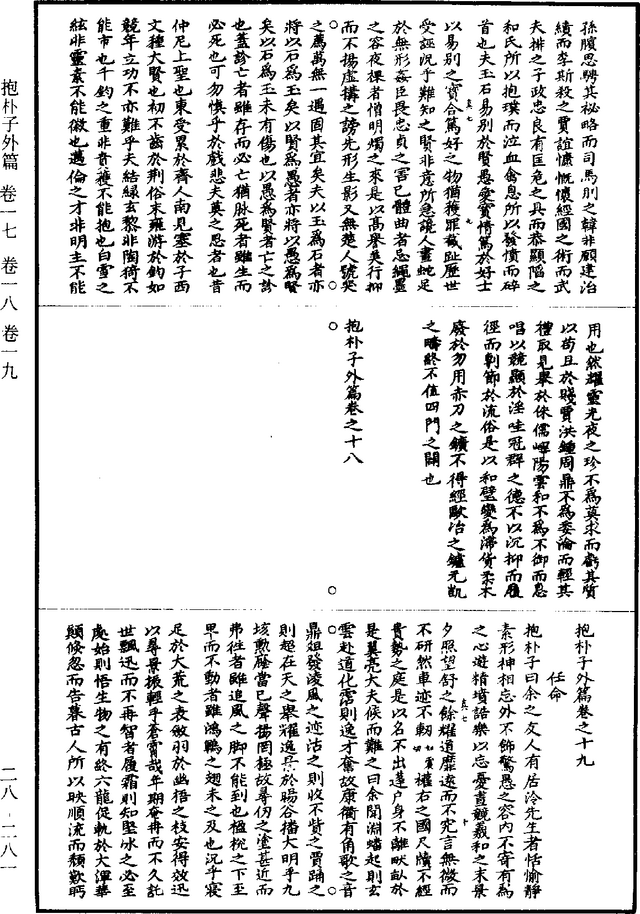 抱朴子外篇 卷一七 卷一八 卷一九
二八-二八一
孫臏思騁其祕略而司馬刖之韓非願建治
績而李斯殺之賈誼慷慨懷經國之術而武
夫排之子政忠良有匡危之具而恭顯陷之
和氏所以抱璞而泣血禽息所以發憤而碎
首也夫玉石易別於賢愚愛寶情篤於好士
以易別之寶合篤好之物猶獲罪截趾歷世
受誣況乎難知之賢非意所急讒人畫蛇足
於無形姦臣畏忠貞之害己體曲者忌繩墨
之容夜裸者憎明燭之來是以高譽美行抑
而不揚虛構之謗先形生影又無楚人號哭
之薦萬無一遇固其宜矣夫以玉為石者亦
將以石為玉矣以賢為愚者亦將以愚為賢
矣以石為玉未有傷也以愚為賢者亡之診
也蓋診亡者雖存而必亡猶脉死者雖生而
必死也可勿慎乎於戲悲夫莫之思者也昔
仲尼上聖也東受累於齊人南見塞於子西
文種大賢也初不齒於荆俗末雍游於鈞如
競年立功不亦難乎夫結緑玄黎非陶猗不
能市也千鈞之重非賁獲不能抱也白雪之
絃非靈素不能徽也邁倫之才非明主不能
用也然耀靈光夜之珍不為莫求而虧其質
以苟且於賤賈洪鍾周鼎不為委淪而輕其
體取見舉於侏儒嶧陽雲和不為不御而息
唱以競顯於淫哇冠群之德不以沉抑而履
徑而剸節於流俗是以和璧變為滯貨柔木
廢於勿用赤刀之鑛不得經歐冶之鑪元凱
之疇終不值四門之闢也
抱朴子外篇卷之十八
抱朴子外篇卷之十九
任命
抱朴子曰余之友人有居泠先生者恬愉靜
素形神相忘外不飾驚愚之容内不寄有為
之心遊精墳誥樂以忘憂晝競羲和之末景
夕照望舒之餘耀道靡遠而不究言無微而
不研然車迹不軔權右之國尺牘不經
貴勢之庭是以名不出蓬戶身不離畎畝於
是翼亮大夫候而難之曰余聞淵蟠起則玄
雲赴道化霑則逸才奮故康衢有角歌之音
鼎俎發凌風之迹沽之則收不貲之賈踊之
則超在天之舉耀逸景於暘谷播大明乎九
垓勲廕當已聲揚罔極故尋仞之塗甚近而
弗往者雖追風之脚不能到也楹梲之下至
卑而不動者雖鴻鵾之翅未之及也況乎寢
足於大荒之表斂羽於幽梧之枝安得效迅
以尋景振輕乎蒼霄哉年期奄冉而不久託
世飄迅而不再智者履霜則知堅冰之必至
處始則悟生物之有終六龍促軌於大渾華
顛倏忽而告暮古人所以映順流而頹歎眄